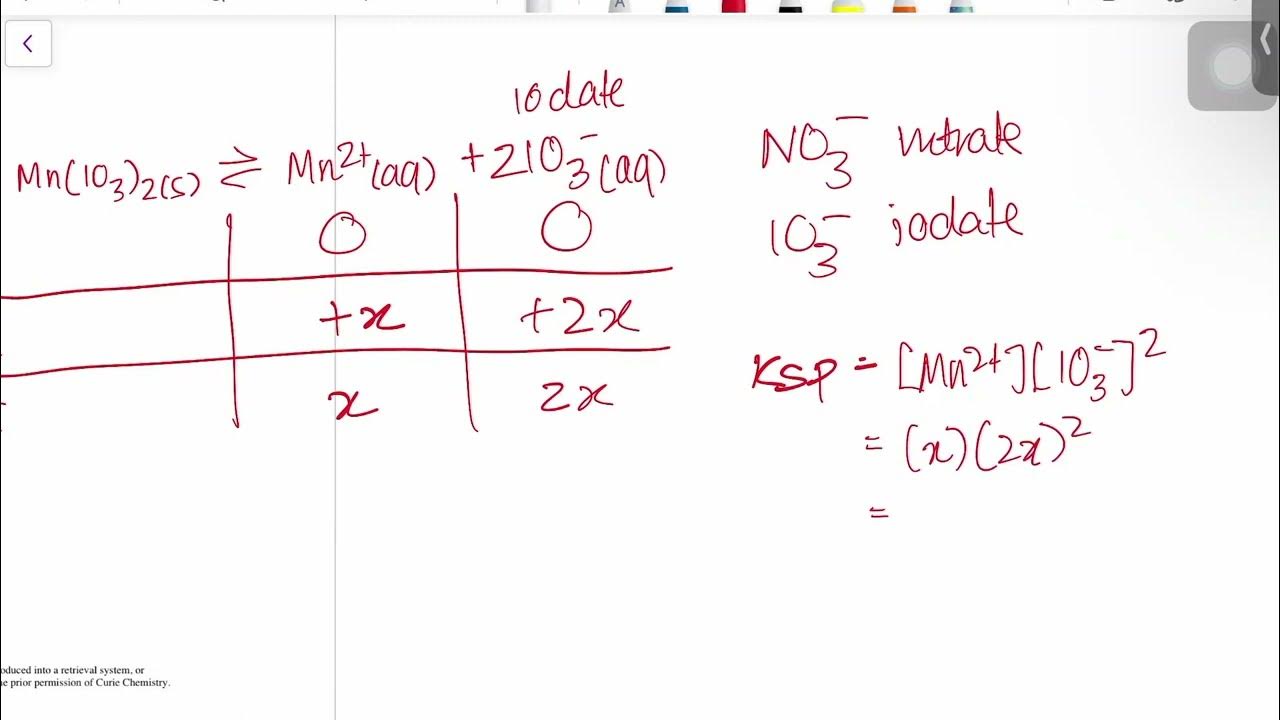 iodate
Mn(IO3)2(s) ⇌ Mn2+(aq) + 2IO3-(aq)
0 0
+x +2x
x 2x
NO3- nitrate
IO3- iodate
Ksp = [Mn2+][IO3-]2
= (x)(2x)2
=
oduced into a retrieval system, or
e prior permission of Curie Chemistry.